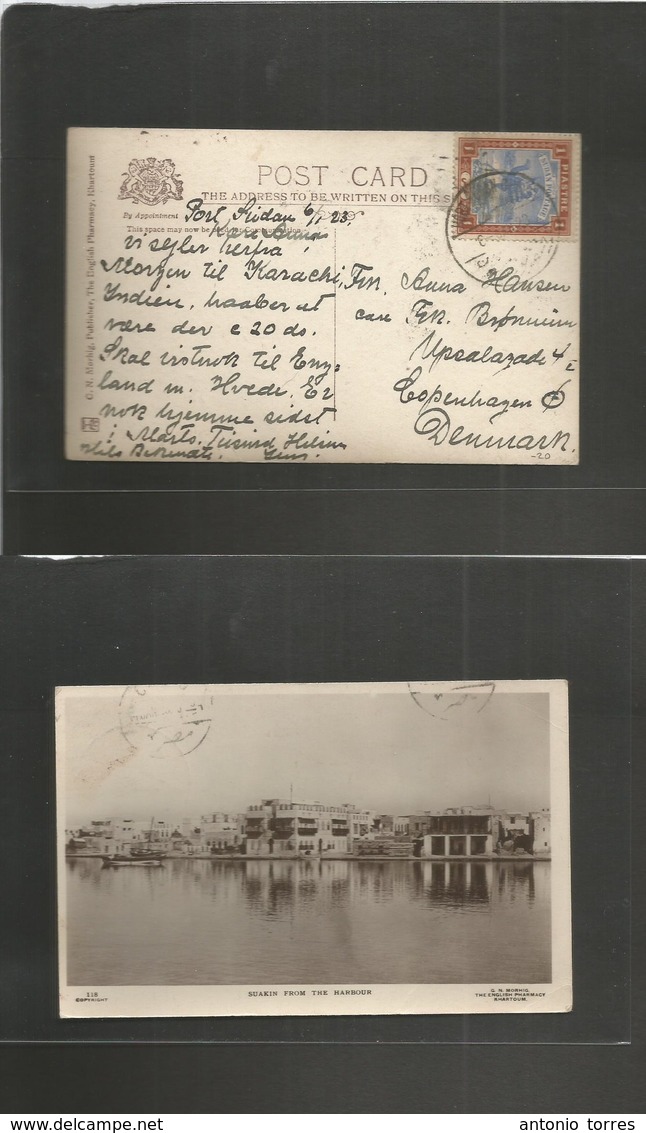 POST CARD
THE ADDRESS TO BE WRITTEN ON THIS
By Appointment
This space may now be used for Communication.
G. N. Morhig, Publisher, The English Pharmacy, Khartoum
1 PIASTRE 1
Port Sudan 6/1 23.
Kære Anna
vi sejler herfra
Morgen til Karachi,
Indien, haaber at
være der c 20 ds.
Skal til Eng-
land m. Hvede. Er
nok hjemme sidst
i Marts.
Frk. Anna Hansen
care Frk.
Upsalagade 4
Copenhagen Ø
Denmark.
-20
118
COPYRIGHT
SUAKIN FROM THE HARBOUR
G. N. MORHIG.
THE ENGLISH PHARMACY
KHARTOUM.
antonio torres